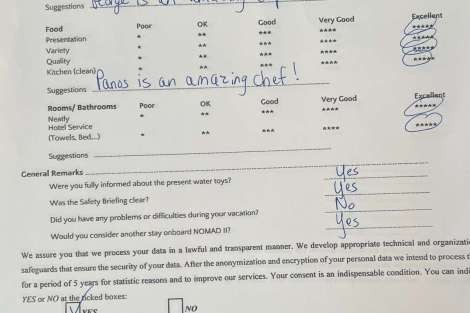 Suggestions George is an amazing
Food Poor OK Good Very Good Excellent
Presentation * ** *** **** *****
Variety * ** *** **** *****
Quality * ** *** **** *****
Kitchen (clean) * ** *** **** *****
Suggestions Panos is an amazing chef!
Rooms/ Bathrooms Poor OK Good Very Good Excellent
Neatly * ** *** **** *****
Hotel Service
(Towels, Bed...) * ** *** **** *****
Suggestions
General Remarks
Were you fully informed about the present water toys? Yes
Was the Safety Briefing clear? Yes
Did you have any problems or difficulties during your vacation? No
Would you consider another stay onboard NOMAD II? Yes
We assure you that we process your data in a lawful and transparent manner. We develop appropriate technical and organizati
safeguards that ensure the security of your data. After the anonymization and encryption of your personal data we intend to process t
for a period of 5 years for statistic reasons and to improve our services. Your consent is an indispensable condition. You can indi
YES or NO at the ticked boxes:
YES NO